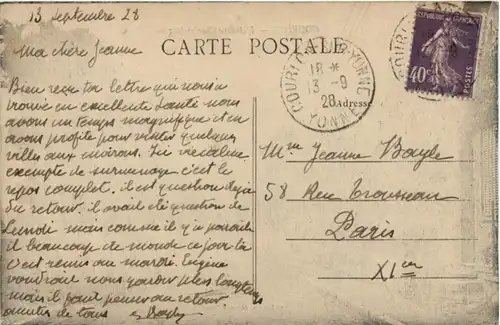 13 Septembre 28
Ma chère Jeanne
CARTE POSTALE
Bien reçu ta lettre qui nous a
trouvé en excellente Santé nous
avons un temps magnifique et en
avons profité pour visiter quelques
villes aux environs. Ici vie calme
exempte de surmenage c'est le
repos complet, il est question déjà
du retour. il avait été question de
Lundi mais comme il y a parait
il beaucoup de monde ce jour là
c'est remis au mardi. Eugène
voudrait nous garder plus longtemps
mais il faut penser au retour
amitiés de tous
RÉPUBLIQUE FRANÇAISE
40c
POSTES
YONNE
18 *
13 - 9
28
YONNE
Adresse
Mme Jeanne Bayle
58 Rue Trousseau
Paris
XIem